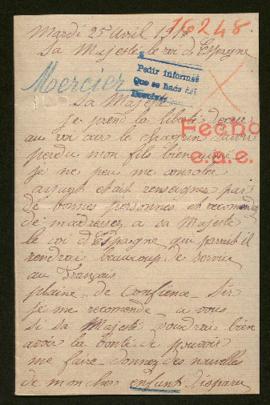 Mardi 25 avril 191
16248
Sa Majesté le roi d'Espagne
Mercier
Pedir informes
Que se hada
Sa Majesté
je prend la liberté d'ecrire
au roi car le chagrin d'avoir
Fecho
perdu mon fils bien aimé
e.a.e.
je ne peu me consoler
ausitôt etait renseigner par
de bonnes personnes et
de m'adresser a sa Majesté
le roi d'Espagne qui parait il
rendrait beaucoup de service
au Français
plaine de confience Sir
je me recomende a vous
si sa Majesté voudrais bien
avoir la bonté de pouvoir
me faire donner des nouvelles
de mon cher enfant disparu